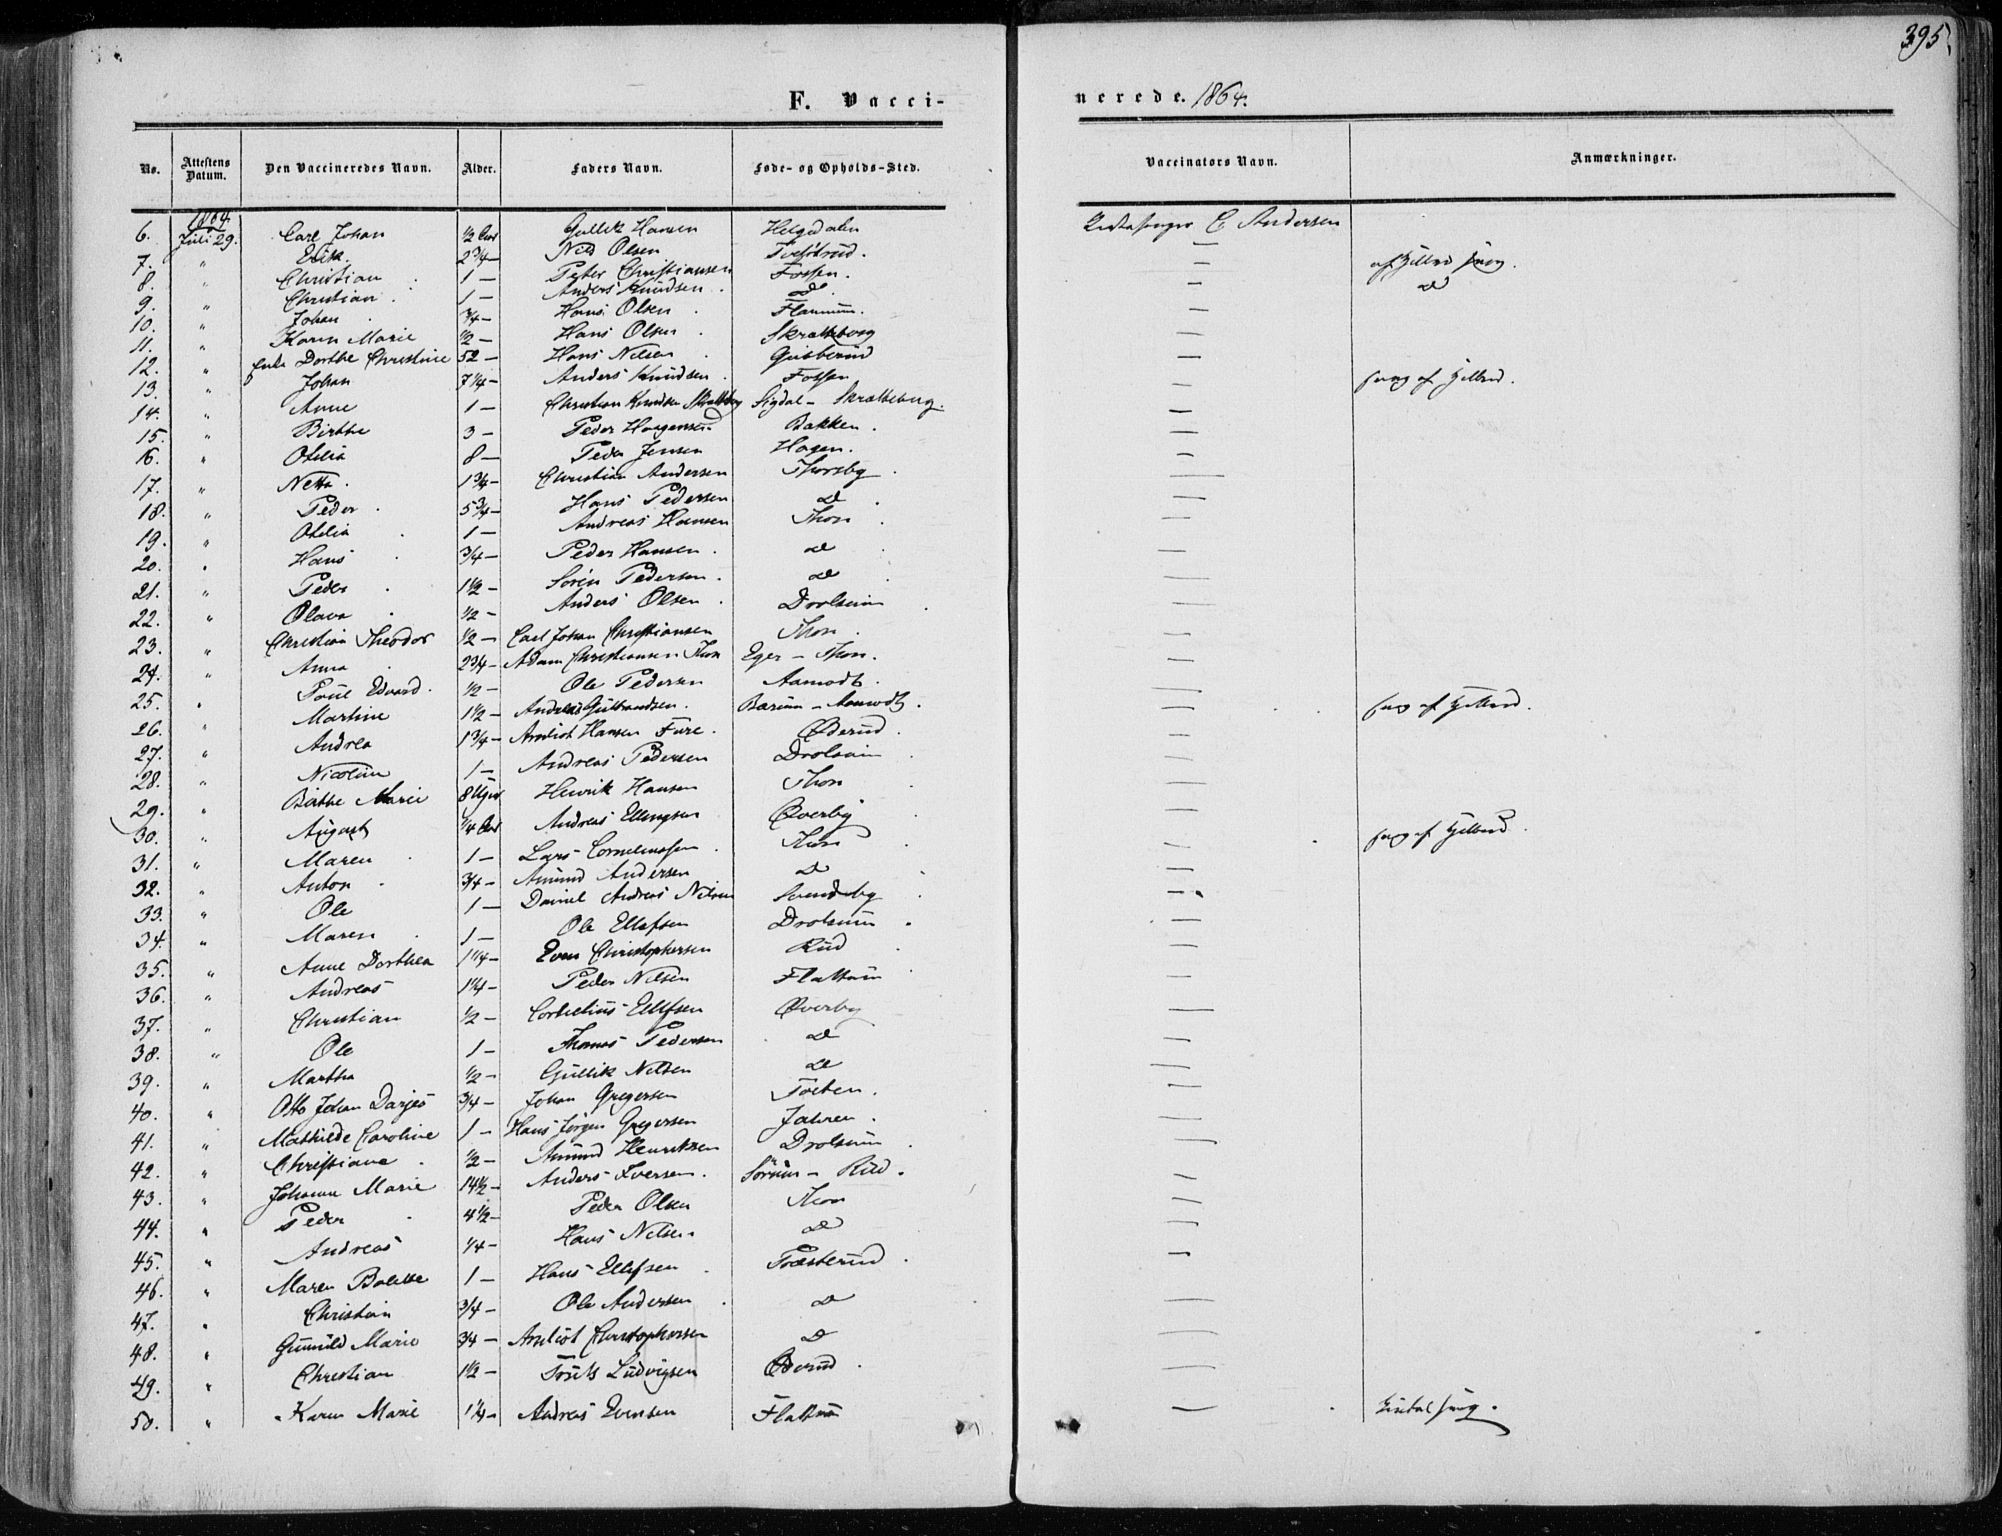 395
F. Vacci-
nerede. 1864.
No. Attestens Datum. Den Vaccineredes Navn. Alder. Faders Navn. Føde- og Opholds-Sted. Vaccinators Navn. Anmærkninger.
1864
6. Juli 29. Carl Johan ½ Aar Gullik Hansen Helgedalen C Andersen
7. " Erik 2¾ — Nils Olsen —
8. " Christian 1 — Peter Christiansen Fossen. — af
9. " Christian 1 — Anders Knudsen do —
10. " Johan ¾ — Hans Olsen Flannum. —
11. " Karen Marie ½ — Hans Olsen Skratteborg —
12. " Enke Dorthe Christine 52 — Hans Nilsen Guisberud —
13. " Johan 7¼ — Anders Knudsen Fossen — af
14. " Anne 1 — Christian Knudsen Sigdal — Skratteborg. —
15. " Birthe 3 — Peder Haagensen Bakken. —
16. " Otelia 8 — Peder Jensen Hagen. —
17. " Netta 1¾ — Christian Andersen Thorsby —
18. " Peder 5¾ — Hans Pedersen do —
19. " Otelia 1 — Andreas Hansen Thon —
20. " Hans ¾ — Peder Hansen do —
21. " Peder 1½ — Soren Pedersen do —
22. " Olava ½ — Anders Olsen Drolsum —
23. " Christian Theodor ½ — Carl Johan Christiansen Thon —
24. " Anna 2¾ — Adam Christiansen Thon Eger — Thon. —
25. " Poul Edvard ½ — Ole Pedersen Aamodt. —
26. " Martine 1½ — Andreas Gulbrandsen. Bærum — Aamodt. — af
27. " Andrea 1¾ — Amliot Hansen Fure. Øderud. —
28. " Nicoline 1 — Andreas Pedersen Drolsum —
29. " Birthe Marie 8 Uger Henrik Hansen Thon —
30. " August ¼ Aar Andreas Ellingsen Øverby —
31. " Maren 1 — Lars Corneliussen Thon — af
32. " Anton ¾ — Amund Andersen do —
33. " Ole 1 — Daniel Andreas Nilsen Svendsby —
34. " Maren 1 — Ole Ellefsen Drolsum —
35. " Anne Dorthea 1¼ — Even Christophersen Rud —
36. " Andreas 1¼ — Peder Nilsen Flattum —
37. " Christian ½ — Cornelius Ellefsen Øverby —
38. " Ole 1 — Thomas Pedersen do —
39. " Martha ½ — Gullik Nilsen do —
40. " Otto Johan Darjes ¾ — Johan Gregersen —
41. " Mathilde Caroline 1 — Hans Jørgen Gregersen Jahren. —
42. " Christiane ½ — Amund Henriksen Drolsum —
43. " Johanne Marie 14½ — Anders Iversen. Sørum — Rud. —
44. " Peder 4½ — Peder Olsen Thon —
45. " Andreas ¼ — Hans Nilsen do —
46. " Maren Bolette 1 — Hans Ellefsen Præsterud —
47. " Christian ¾ — Ole Andersen do —
48. " Gunnild Marie ¾ — Amliot Christophersen do —
49. " Christian 1½ — Truls Ludvigsen Øderud —
50. " Karen Marie 1¼ — Andreas Evensen Flattum —